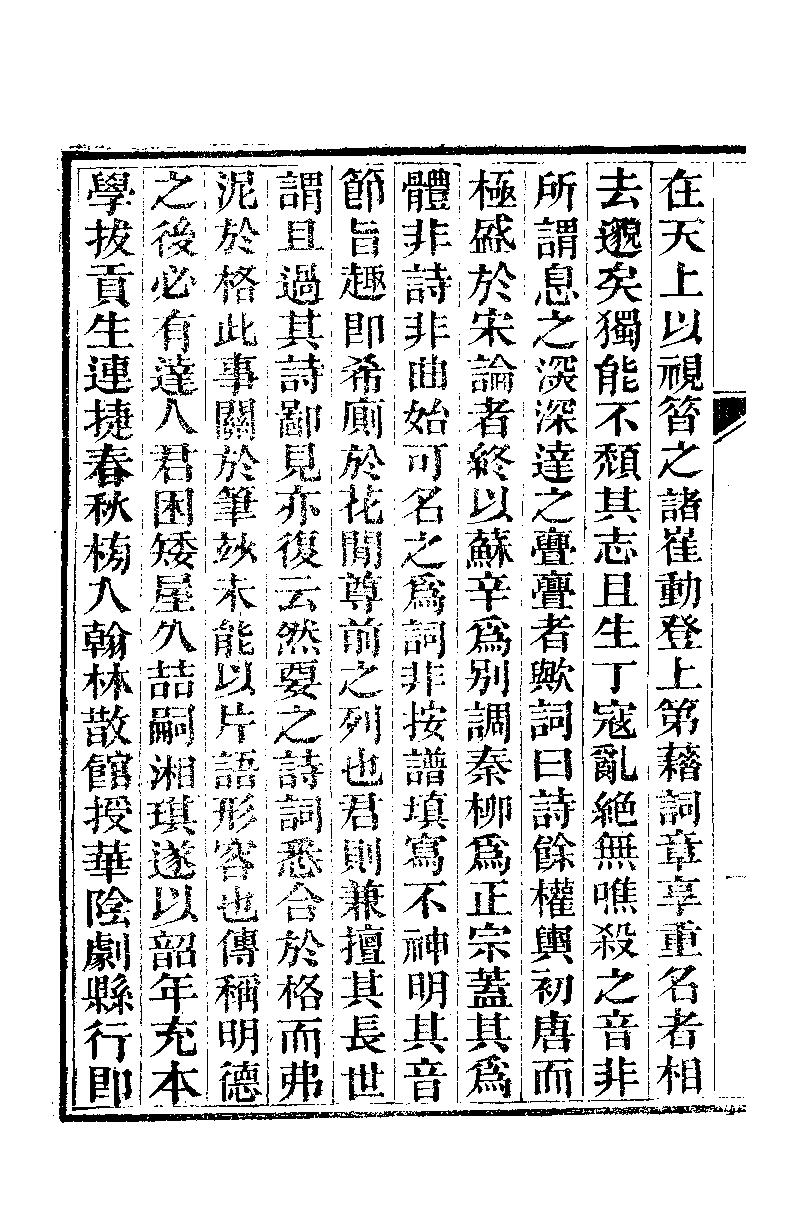 在天上以視筓之諸崔動登上第藉詞章享重名者相
去邈矣獨能不頹其志且生丁寇亂絶無噍殺之音非
所謂息之深深達之亹亹者歟詞曰詩餘權輿初唐而
極盛於宋論者終以蘇辛爲別調秦柳爲正宗蓋其爲
體非詩非曲始可名之爲詞非按譜填寫不神明其音
節旨趣即希廁於花間尊前之列也君則兼擅其長世
謂且過其詩鄙見亦復云然要之詩詞悉合於格而弗
泥於格此事關於筆玅未能以片語形容也傳稱明德
之後必有達人君困矮屋久喆嗣湘琪遂以韶年充本
學拔貢生連捷春秋榜入翰林散館授華陰劇縣行即